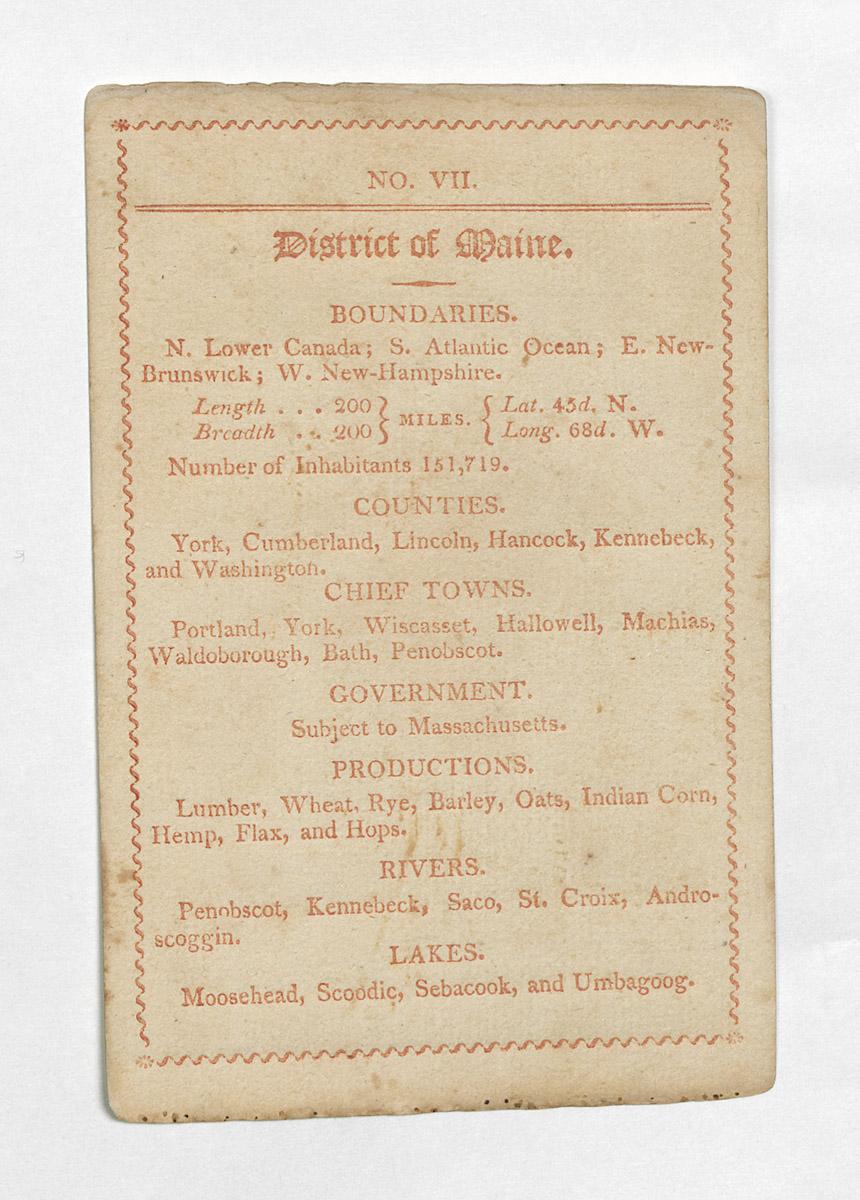 NO. VII.
District of Maine.
BOUNDARIES.
N. Lower Canada; S. Atlantic Ocean; E. New-
Brunswick; W. New-Hampshire.
Length . . . 200 } MILES. { Lat. 45d. N.
Breadth . . 200 } { Long. 68d. W.
Number of Inhabitants 151,719.
COUNTIES.
York, Cumberland, Lincoln, Hancock, Kennebeck,
and Washington.
CHIEF TOWNS.
Portland, York, Wiscasset, Hallowell, Machias,
Waldoborough, Bath, Penobscot.
GOVERNMENT.
Subject to Massachusetts.
PRODUCTIONS.
Lumber, Wheat, Rye, Barley, Oats, Indian Corn,
Hemp, Flax, and Hops.
RIVERS.
Penobscot, Kennebeck, Saco, St. Croix, Andro-
scoggin.
LAKES.
Moosehead, Scoodic, Sebacook, and Umbagoog.